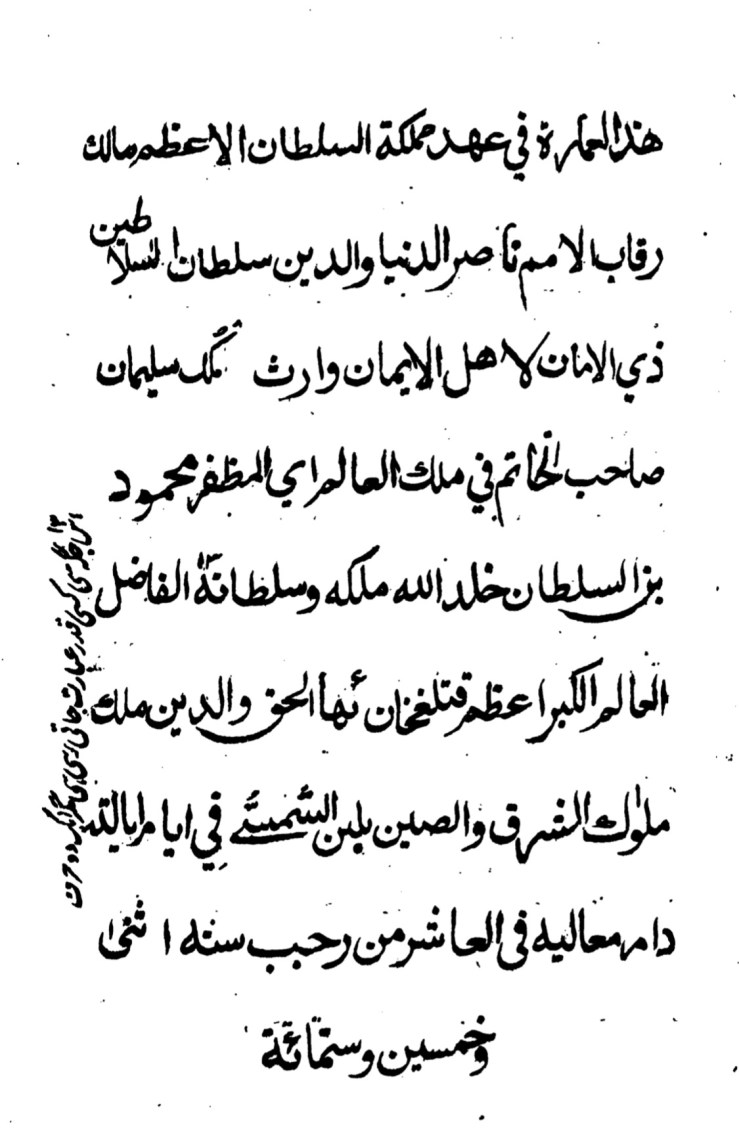 هذا العمارة في عهد مملكة السلطان الاعظم مالك
رقاب الامم ناصر الدنيا والدين سلطان السلاطين
ذي الامان لاهل الايمان وارث ملك سليمان
صاحب الخاتم في ملك العالم ابي المظفر محمود
بن السلطان خلد الله ملكه وسلطانة الفاضل
العالم الكبر اعظم قتلغخان بهأ الحق والدين ملك
ملوك الشرق والصين بلبن الشمسي في ايام ايالته
دام معاليه في العاشر من رجب سنه اثنى
وخمسين وستمائة
اس جگہ سی کسی قدر عبارت جاتی رہی ہی مگر ایک دو حرف